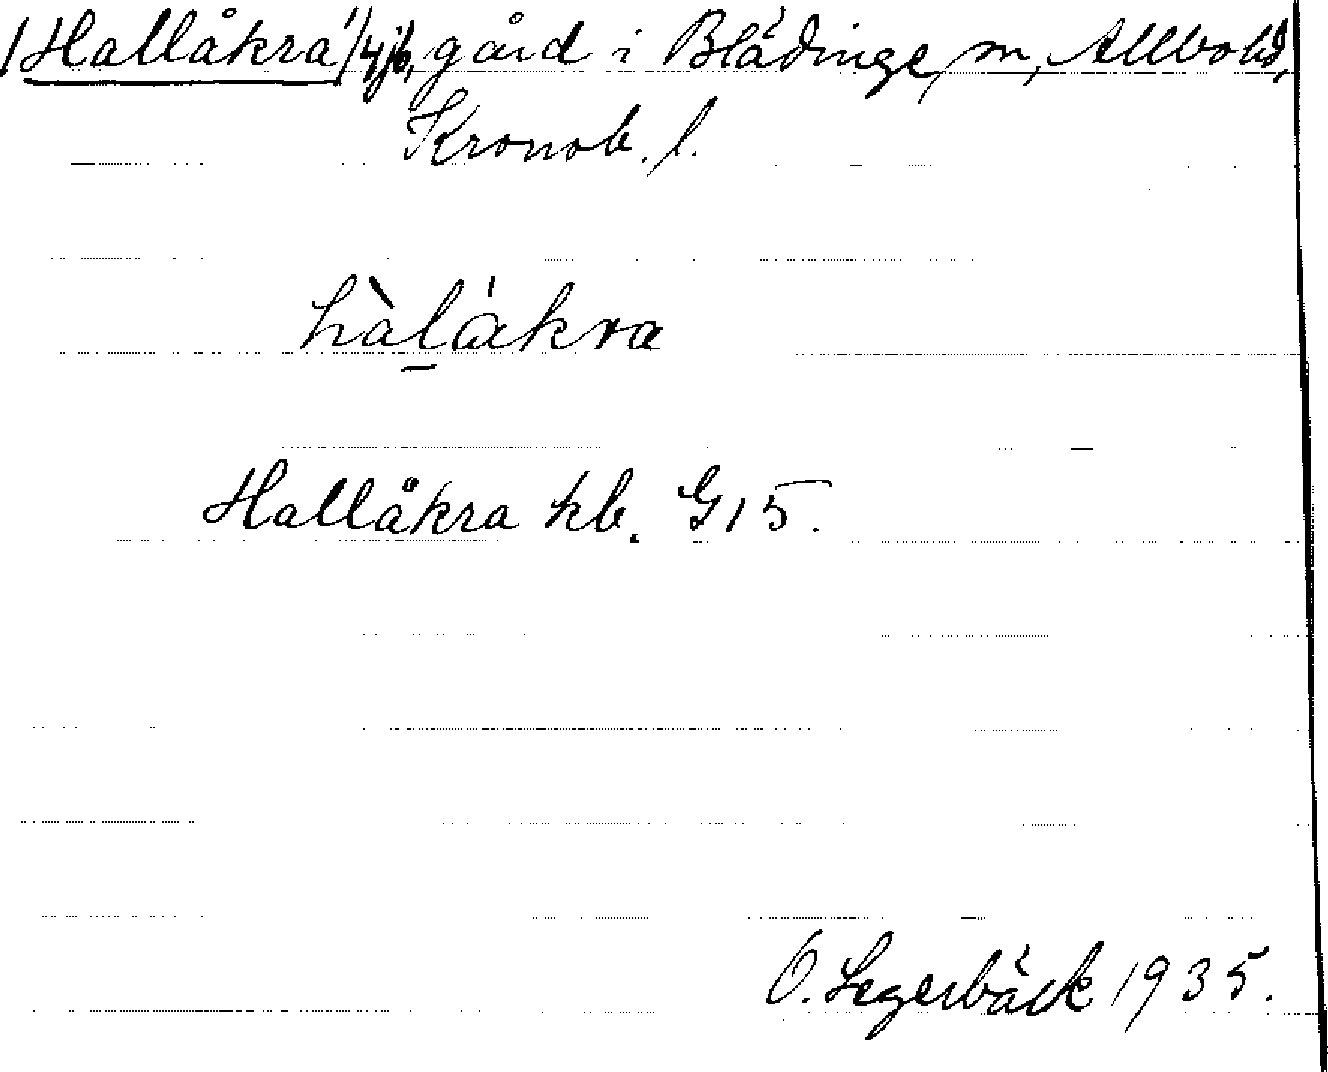 /Hallåkra/ gård i Blädinge sn, Allbo hd,
Kronob. l.
hàlákra
Hallåkra kb. G15.
O. Segerbäck 1935.